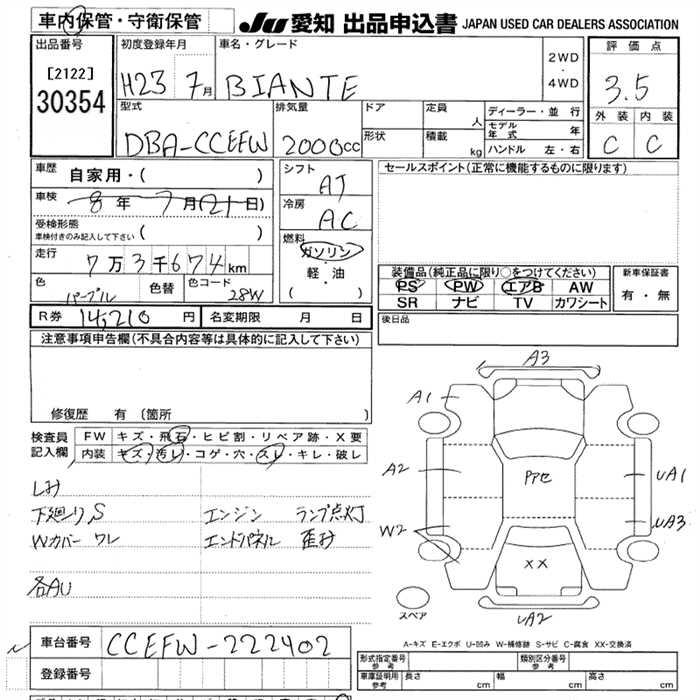 車内保管・守衛保管
JU 愛知 出品申込書 JAPAN USED CAR DEALERS ASSOCIATION
出品番号
[2122]
30354
初度登録年月
H23 7月
車名・グレード
BIANTE
2WD
・
4WD
評価点
3.5
外装 内装
C C
型式
DBA-CCEFW
排気量
2000cc
ドア
形状
定員 人
積載 kg
ディーラー・並 行
モデル年式 年
ハンドル 左・右
車歴 自家用・( )
車検 8年 7月(21日)
受検形態
車検付きのみ記入して下さい ( )
走行 7万3千674km
色 パープル 色替 色コード 28W
シフト
AT
冷房
AC
燃料
ガソリン
・
軽・油
( )
セールスポイント(正常に機能するものに限ります)
装備品(純正品に限り○をつけてください)
PS PW エアB AW
SR ナビ TV カワシート
新車保証書
有・無
R券 14,210円 名変期限 月 日
後日品
注意事項申告欄(不具合内容等は具体的に記入して下さい)
修復歴 有 (箇所 )
検査員記入欄
FW キズ・飛石・ヒビ割・リペア跡・X要
内装 キズ・汚レ・コゲ・穴・スレ・キレ・破レ
シミ
下廻り S エンジン ランプ点灯
Wカバー ワレ エンドパネル 歪み
各AU
A3
A1
A2 Pアセ UA1
W2 UA3
XX
スペア
UA2
A-キズ E-エクボ U-凹み W-補修跡 S-サビ C-腐食 XX-交換済
車台番号 CCEFW-222402
登録番号
形式指定番号 参考 類別区分番号 参考
車庫証明用 参考 長さ cm 幅 cm 高さ cm